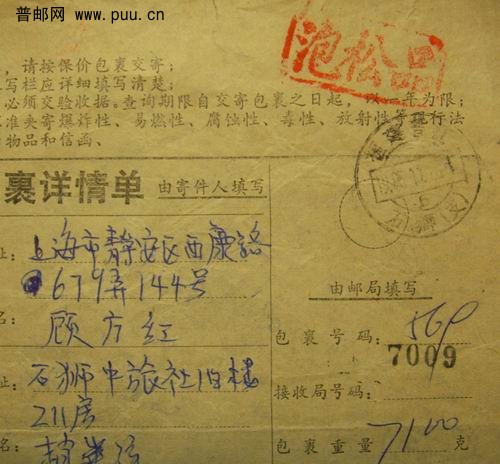 普邮网 www.puu.cn
泡松品
，请按保价包裹交寄；
写栏应详细填写清楚；
必须交验收据。查询期限自交寄包裹之日起，以一年为限；
准夹寄爆炸性、易燃性、腐蚀性、毒性、放射性等现行法
物品和信函、
裹详情单 由寄件人填写
址：上海市静安区西康路
679弄144号
名：顾方红
址：石狮中旅社旧楼
211房
名：赵
由邮局填写
包裹号码：569
7009
接收局号码：
包裹重量 7100 克